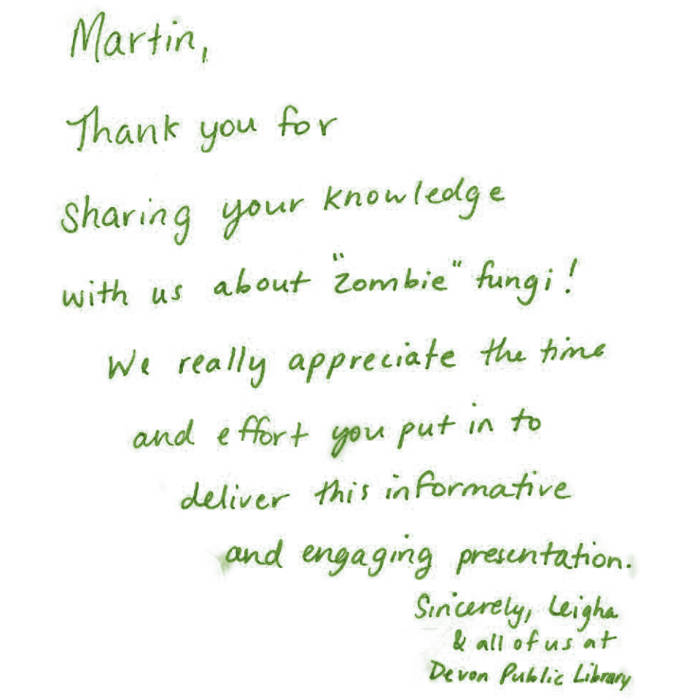 Martin,
Thank you for
sharing your knowledge
with us about "zombie" fungi!
We really appreciate the time
and effort you put in to
deliver this informative
and engaging presentation.
Sincerely, Leigha
& all of us at
Devon Public Library